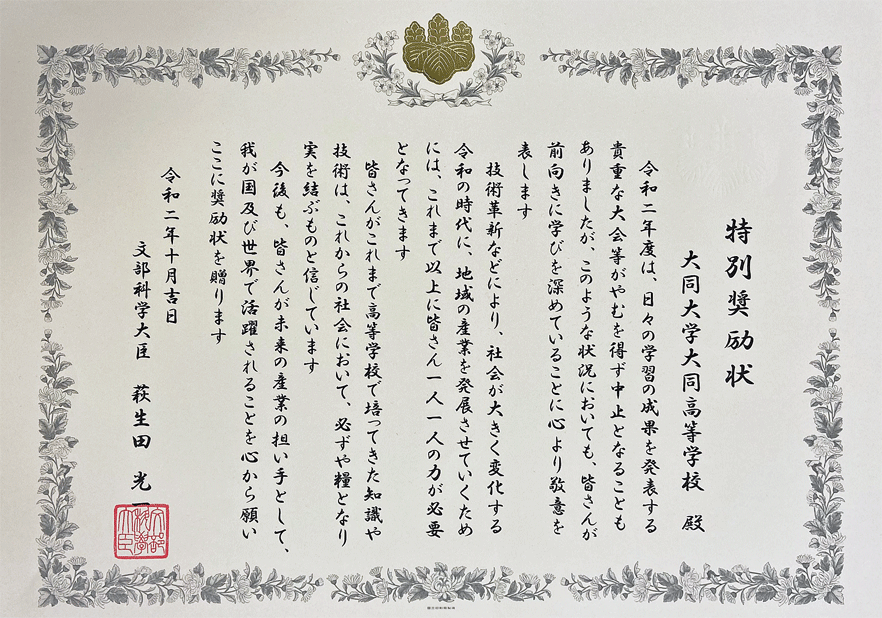 特別奨励状
大同大学大同高等学校 殿
令和二年度は、日々の学習の成果を発表する
貴重な大会等がやむを得ず中止となることも
ありましたが、このような状況においても、皆さんが
前向きに学びを深めていることに心より敬意を
表します
技術革新などにより、社会が大きく変化する
令和の時代に、地域の産業を発展させていくため
には、これまで以上に皆さん一人一人の力が必要
となってきます
皆さんがこれまで高等学校で培ってきた知識や
技術は、これからの社会において、必ずや糧となり
実を結ぶものと信じています
今後も、皆さんが未来の産業の担い手として、
我が国及び世界で活躍されることを心から願い
ここに奨励状を贈ります
令和二年十月吉日
文部科学大臣 萩生田 光一